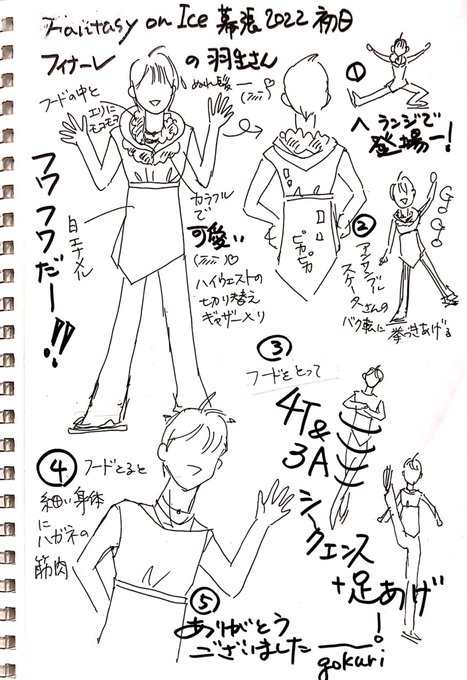 Fantasy on Ice 幕張 2022 初日
フィナーレ の 羽生さん
フードの中と
エリに
モコモコ
ぬれ髪
フワフワだー!!
白エナメル
カラフル
で
可愛い
ハイウエストの
切り替え
ギャザー入り
ピカピカ
①
ヘランジで
登場ー!
②
GO!GO!
アンサンブル
スケーターさんの
バク転に拳つきあげる
③
フードをとって
4T&
3A
シークエンス
+足あげ
!
④
フードとると
細い身体
に
ハガネの
筋肉
⑤
ありがとう
ございました
gokuri